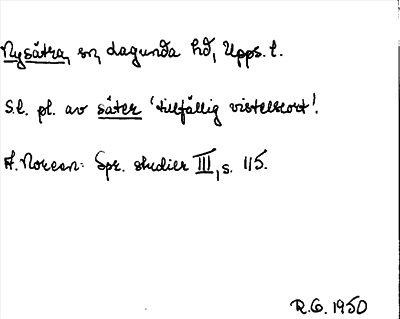 Nysätra, sn, Lagunda hd, Upps. l.
S.l. pl. av säter 'tillfällig vistelseort'.
A. Noreen: Spr. studier III, s. 115.
R.G. 1950